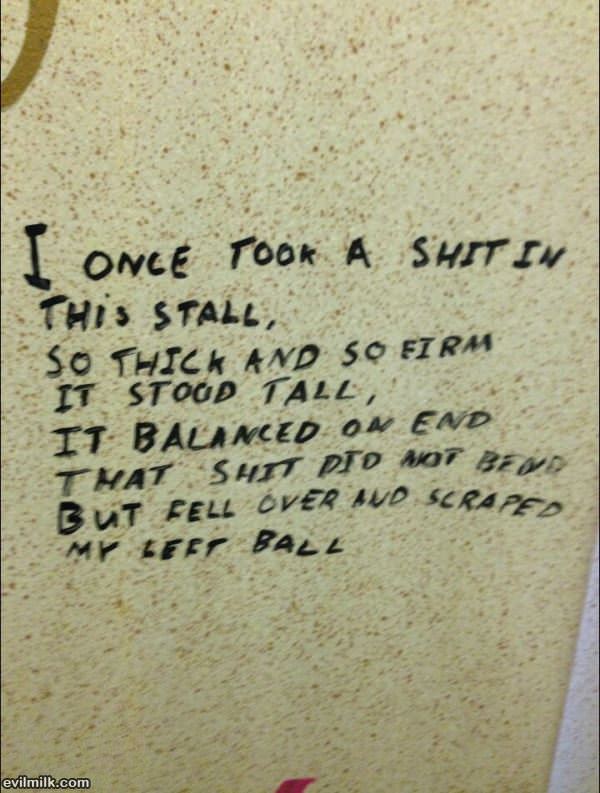 I ONCE TOOK A SHIT IN
THIS STALL,
SO THICK AND SO FIRM
IT STOOD TALL,
IT BALANCED ON END
THAT SHIT DID NOT BEND
BUT FELL OVER AND SCRAPED
MY LEFT BALL
evilmilk.com